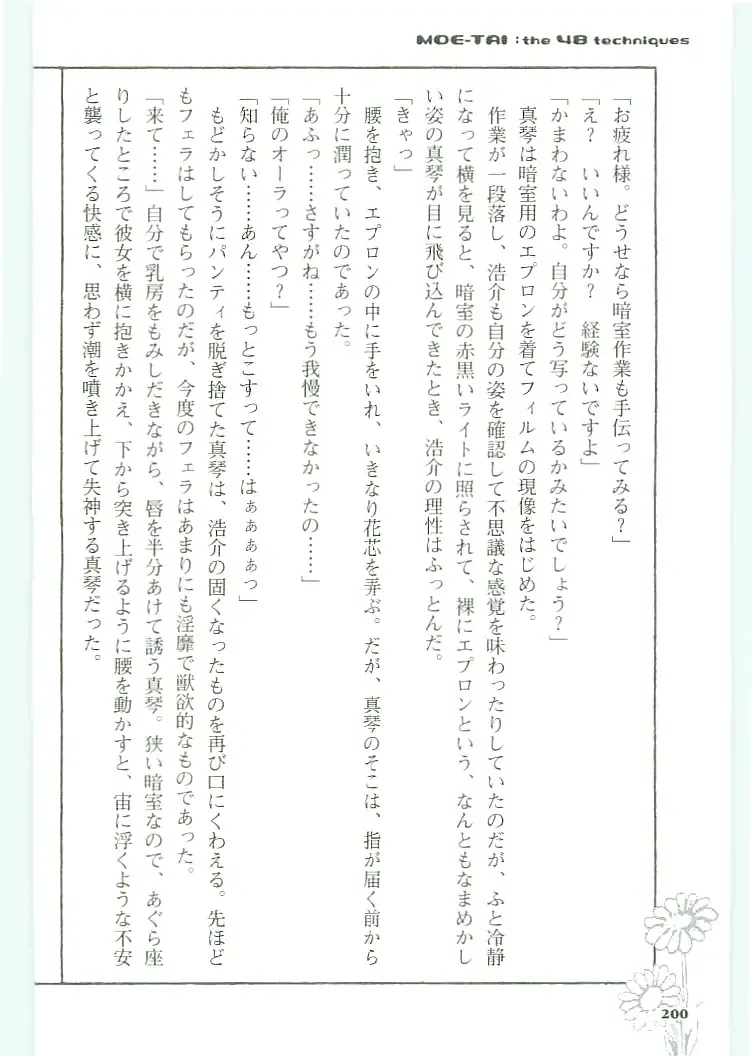 MOE-TAI : the 48 techniques
「お疲れ様。どうせなら暗室作業も手伝ってみる?」
「え? いいんですか? 経験ないですよ」
「かまわないわよ。自分がどう写っているかみたいでしょう?」
真琴は暗室用のエプロンを着てフィルムの現像をはじめた。
作業が一段落し、浩介も自分の姿を確認して不思議な感覚を味わったりしていたのだが、ふと冷静
になって横を見ると、暗室の赤黒いライトに照らされて、裸にエプロンという、なんともなまめかし
い姿の真琴が目に飛び込んできたとき、浩介の理性はふっとんだ。
「きゃっ」
腰を抱き、エプロンの中に手をいれ、いきなり花芯を弄ぶ。だが、真琴のそこは、指が届く前から
十分に潤っていたのであった。
「あふっ……さすがね……もう我慢できなかったの……」
「俺のオーラってやつ?」
「知らない……あん……もっとこすって……はぁぁぁぁっ」
もどかしそうにパンティを脱ぎ捨てた真琴は、浩介の固くなったものを再び口にくわえる。先ほど
もフェラはしてもらったのだが、今度のフェラはあまりにも淫靡で獣欲的なものであった。
「来て……」自分で乳房をもみしだきながら、唇を半分あけて誘う真琴。狭い暗室なので、あぐら座
りしたところで彼女を横に抱きかかえ、下から突き上げるように腰を動かすと、宙に浮くような不安
と襲ってくる快感に、思わず潮を噴き上げて失神する真琴だった。
200